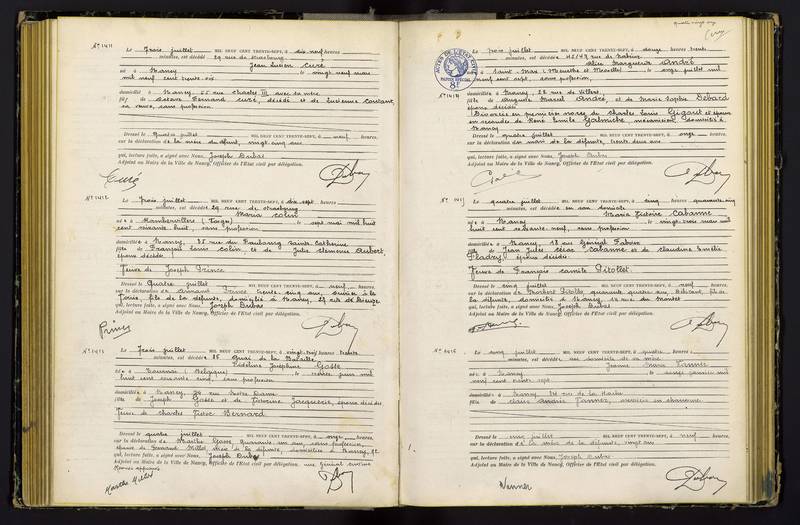 N° 1411
Le trois juillet MIL NEUF CENT TRENTE-SEPT, à dix neuf heures
minutes, est décédé 29 rue de Strasbourg
Jean Lucien Curé
né à Nancy le vingt neuf mars
mil neuf cent trente six
domicilié à Nancy, 55 rue Charles III avec sa mère
fils de Octave Fernand Curé, décédé et de Lucienne
sa veuve, sans profession
Dressé le Quatre juillet MIL NEUF CENT TRENTE-SEPT, à neuf heures,
sur la déclaration de la mère du défunt, vingt cinq ans
qui, lecture faite, a signé avec Nous, Joseph Dubas
Adjoint au Maire de la Ville de Nancy, Officier de l'État civil par délégation.
Curé
N° 1412
Le trois juillet MIL NEUF CENT TRENTE-SEPT, à dix sept heures
minutes, est décédée 29 rue de Strasbourg
Maria Colin
née à (Vosges) le sept mai mil huit
cent soixante huit, sans profession
domiciliée à Nancy, 35 rue du Faubourg Sainte Catherine
fille de François Louis Colin et de Julie Clémence Aubert,
époux décédés
Veuve de Joseph Prince
Dressé le Quatre juillet MIL NEUF CENT TRENTE-SEPT, à neuf heures,
sur la déclaration de Armand Prince trente cinq ans,
fils de la défunte, domicilié à Nancy, 27 rue
qui, lecture faite, a signé avec Nous, Joseph Dubas
Adjoint au Maire de la Ville de Nancy, Officier de l'État civil par délégation.
Prince
N° 1413
Le trois juillet MIL NEUF CENT TRENTE-SEPT, à vingt-trois heures trente
minutes, est décédée 85 Quai de la Bataille
Joséphine Gosse
née à Tournai (Belgique) le juin mil
huit cent soixante cinq, sans profession
domiciliée à Nancy, rue Notre Dame
fille de Joseph Gosse et de époux décédés
Veuve de Charles Bernard
Dressé le quatre juillet MIL NEUF CENT TRENTE-SEPT, à onze heures,
sur la déclaration de Marthe Gosse, quarante un ans, sans profession,
épouse de Fernand Millet, nièce de la défunte, domiciliée à Nancy,
qui, lecture faite, a signé avec Nous, Joseph Dubas
Adjoint au Maire de la Ville de Nancy, Officier de l'État civil par délégation.
Marthe Millet
Quatre vingt
Le trois juillet MIL NEUF CENT TRENTE-SEPT, à douze heures trente
minutes, est décédée 45/47, rue de Nabécor
Alice Marguerite André
née à Saint Max (Meurthe et Moselle) le onze juillet mil
neuf cent sept, sans profession,
ACTES DE L'ÉTAT CIVIL
PAPIER SPÉCIAL
8F
N° 1414
domiciliée à Nancy, 22 rue de Villers,
fille de Auguste Marcel André, et de Marie Sophie Débard
époux décédés
Divorcée en premières noces de Charles Louis Gigant et épouse
en secondes de René Emile Galmiche mécanicien, domiciliés à
Nancy
Dressé le quatre juillet MIL NEUF CENT TRENTE-SEPT, à onze heures,
sur la déclaration du mari de la défunte, trente deux ans
qui, lecture faite, a signé avec Nous, Joseph Dubas
Adjoint au Maire de la Ville de Nancy, Officier de l'État civil par délégation.
N° 1415
Le quatre juillet MIL NEUF CENT TRENTE-SEPT, à cinq heures quarante cinq
minutes, est décédée en son domicile
Marie Victoire Cabanne
née à Nancy le vingt-trois mars mil
huit cent soixante neuf, sans profession
domiciliée à Nancy 18 rue Général Fabvier
fille de Jean Jules César Cabanne et de Claudine Amélie
époux décédés.
Veuve de François Camille Pitollet.
Dressé le cinq juillet MIL NEUF CENT TRENTE-SEPT, à neuf heures,
sur la déclaration de Norbert Pitollet, quarante quatre ans, fils de
la défunte, domicilié à Nancy,
qui, lecture faite, a signé avec Nous, Joseph Dubas
Adjoint au Maire de la Ville de Nancy, Officier de l'État civil par délégation.
N° 1416
Le cinq juillet MIL NEUF CENT TRENTE-SEPT, à quatre heures
minutes, est décédée au domicile de sa mère
Jeanne Marie Vanner
née à Nancy le onze janvier mil
neuf cent trente sept
domiciliée à Nancy,
fille de Vanner,
Dressé le cinq juillet MIL NEUF CENT TRENTE-SEPT, à neuf heures,
sur la déclaration de la mère de la défunte, vingt ans
qui, lecture faite, a signé avec Nous, Joseph Dubas
Adjoint au Maire de la Ville de Nancy, Officier de l'État civil par délégation.
Vanner